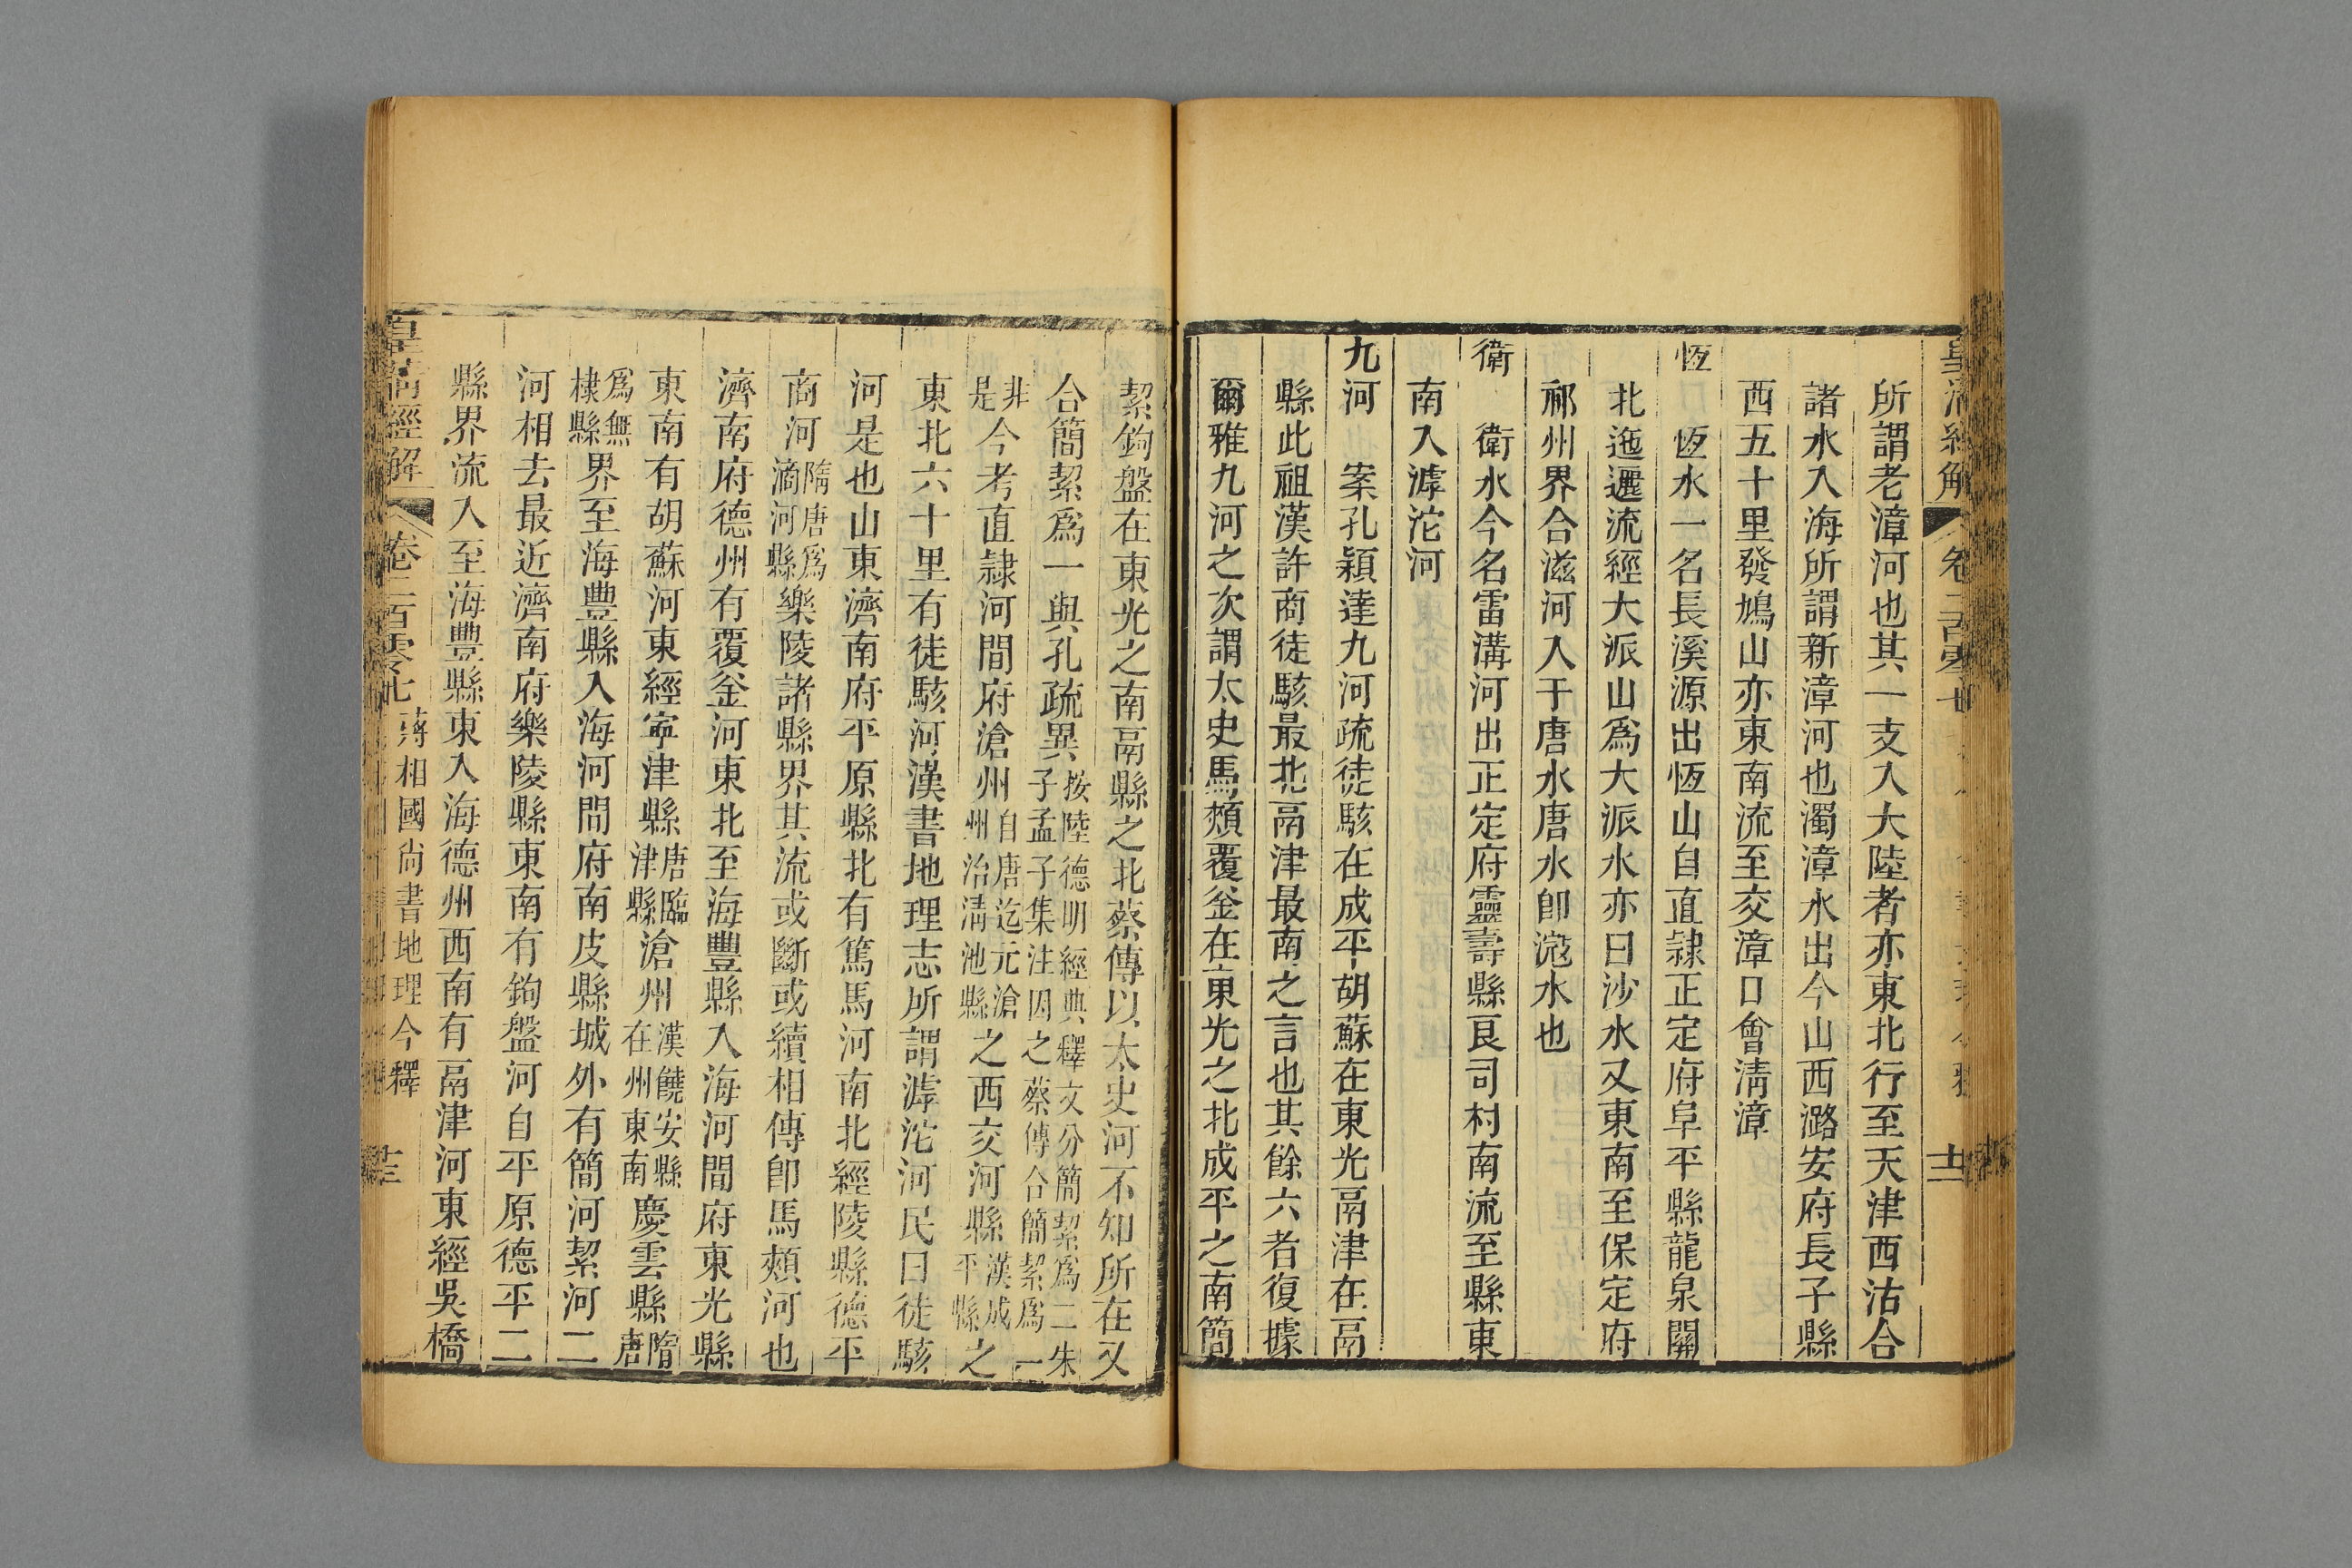 皇清經解
卷二百零七
十二
所謂老漳河也其一支入大陸者亦東北行至天津西沽合
諸水入海所謂新漳河也濁漳水出今山西潞安府長子縣
西五十里發鳩山亦東南流至交漳口會清漳
恆　恆水一名長溪源出恆山自直隸正定府阜平縣龍泉關
北迤邐流經大派山爲大派水亦曰沙水又東南至保定府
祁州界合滋河入于唐水唐水卽滱水也
衛　衛水今名雷溝河出正定府靈壽縣良司村南流至縣東
南入滹沱河
九河　案孔穎達九河疏徒駭在成平胡蘇在東光鬲津在鬲
縣此祖漢許商徒駭最北鬲津最南之言也其餘六者復據
爾雅九河之次謂太史馬頰覆釜在東光之北成平之南簡
絜鉤盤在東光之南鬲縣之北蔡傳以太史河不知所在又
合簡絜爲一與孔疏異按陸德明經典釋文分簡絜爲二朱子孟子集注因之蔡傳合簡絜爲一
非是今考直隸河間府滄州自唐迄元滄州治清池縣之西交河縣漢成平縣之
東北六十里有徒駭河漢書地理志所謂滹沱河民曰徒駭
河是也山東濟南府平原縣北有篤馬河南北經陵縣德平
商河隋唐爲滴河縣樂陵諸縣界其流或斷或續相傳卽馬頰河也
濟南府德州有覆釜河東北至海豐縣入海河間府東光縣
東南有胡蘇河東經寧津縣唐臨津縣滄州漢饒安縣在州東南慶雲縣隋唐
爲無棣縣界至海豐縣入海河間府南皮縣城外有簡河絜河二
河相去最近濟南府樂陵縣東南有鉤盤河自平原德平二
縣界流入至海豐縣東入海德州西南有鬲津河東經吳橋
皇清經解
卷二百零七
蔣相國尚書地理今釋
十三